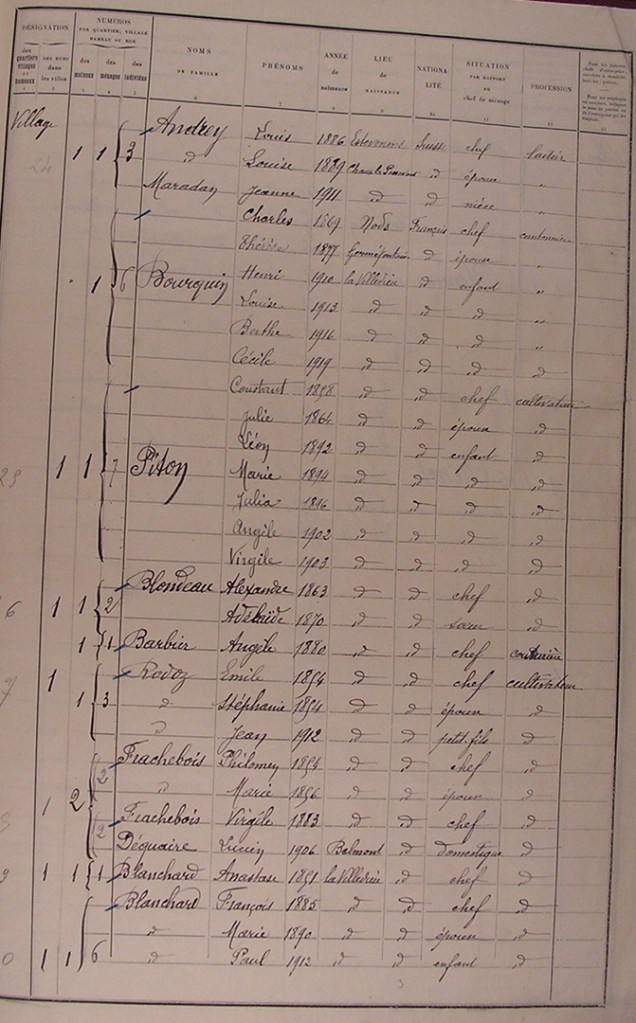 DÉSIGNATION
NUMÉROS PAR QUARTIER, VILLAGE HAMEAU OU RUE
NOMS DE FAMILLE
PRÉNOMS
ANNÉE de naissance
LIEU DE NAISSANCE
NATIONALITÉ
SITUATION PAR RAPPORT au chef de ménage
PROFESSION
des quartiers villages ou hameaux
des rues dans les villes
des maisons
des ménages
des individus
Village
1 1 3 Andrey Louis 1886 Suisse chef laitier
d Louise 1889 d épouse "
Maradan Jeanne 1911 d d nièce "
Charles 1869 Nods Français chef cantonnier
Thérèse 1877 Germéfontaine d épouse "
1 6 Bourquin Henri 1910 la Villedieu d enfant "
Louise 1913 d d d "
Berthe 1916 d d d "
Cécile 1919 d d d d
Constant 1858 d d chef cultivateur
Julie 1864 d d épouse d
Léon 1892 d d enfant d
1 1 7 Piton Marie 1894 d d d d
Julia 1896 d d d d
Angèle 1902 d d d d
Virgile 1903 d d d d
Blondeau Alexandre 1863 d d chef d
1 1 2 Adélaïde 1870 d d sœur d
1 1 Barbier Angèle 1880 d d chef couturière
1 Rodoz Emile 1854 d d chef cultivateur
1 3 d Stéphanie 1854 d d épouse d
d Jean 1912 d d petit-fils d
2 Frachebois Philomey 1854 d d chef d
d Marie 1856 d d épouse d
1 2 Frachebois Virgile 1883 d d chef d
2 Déquaire Lucien 1906 Belmont d domestique d
1 1 1 Blanchard Anastase 1851 la Villedieu d chef d
Blanchard François 1885 d d chef d
d Marie 1890 d d épouse d
1 1 6 d Paul 1912 d d enfant d